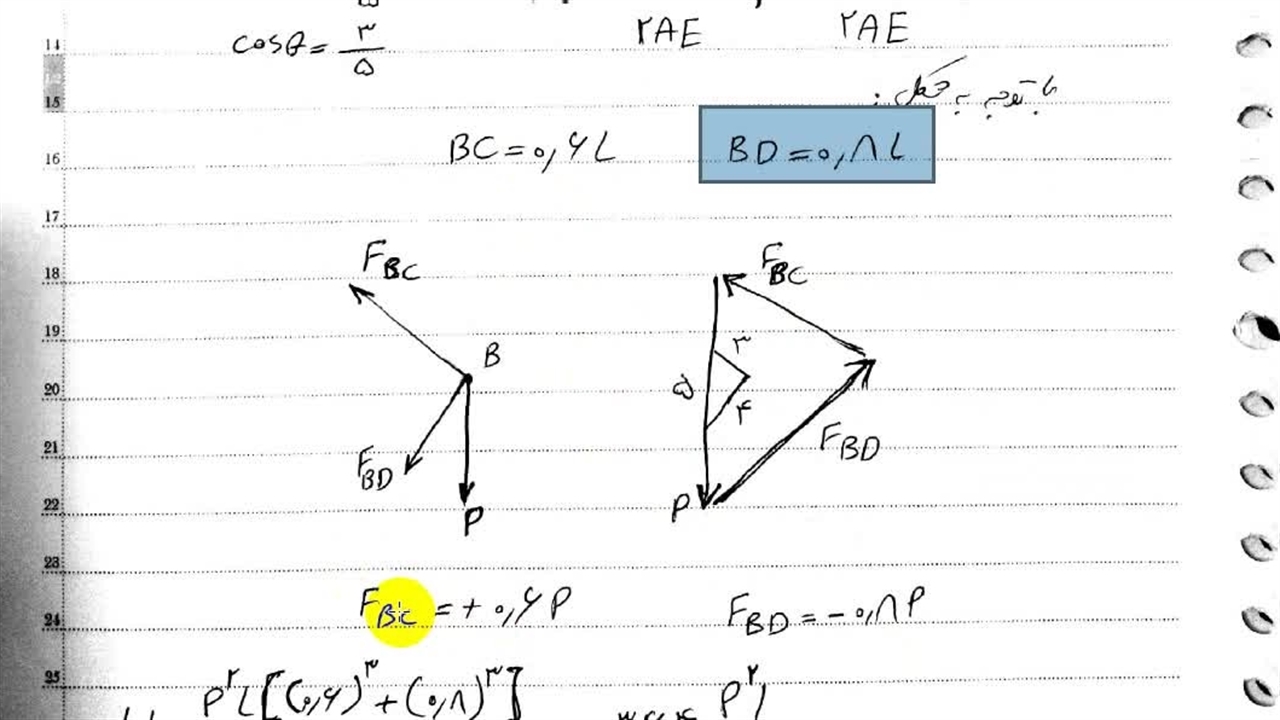 14
cosθ = ۳/۵
۲AE ۲AE
15
با توجه به شکل :
16
BC = ۰,۶L BD = ۰,۸L
17
18
F_BC F_BC
19
B ۳
20
۵ ۴
21
F_BD F_BD
22
P P
23
24
F_BC = + ۰,۶P F_BD = - ۰,۸P
25
P²L[(۰,۶)³ + (۰,۸)³] P²L